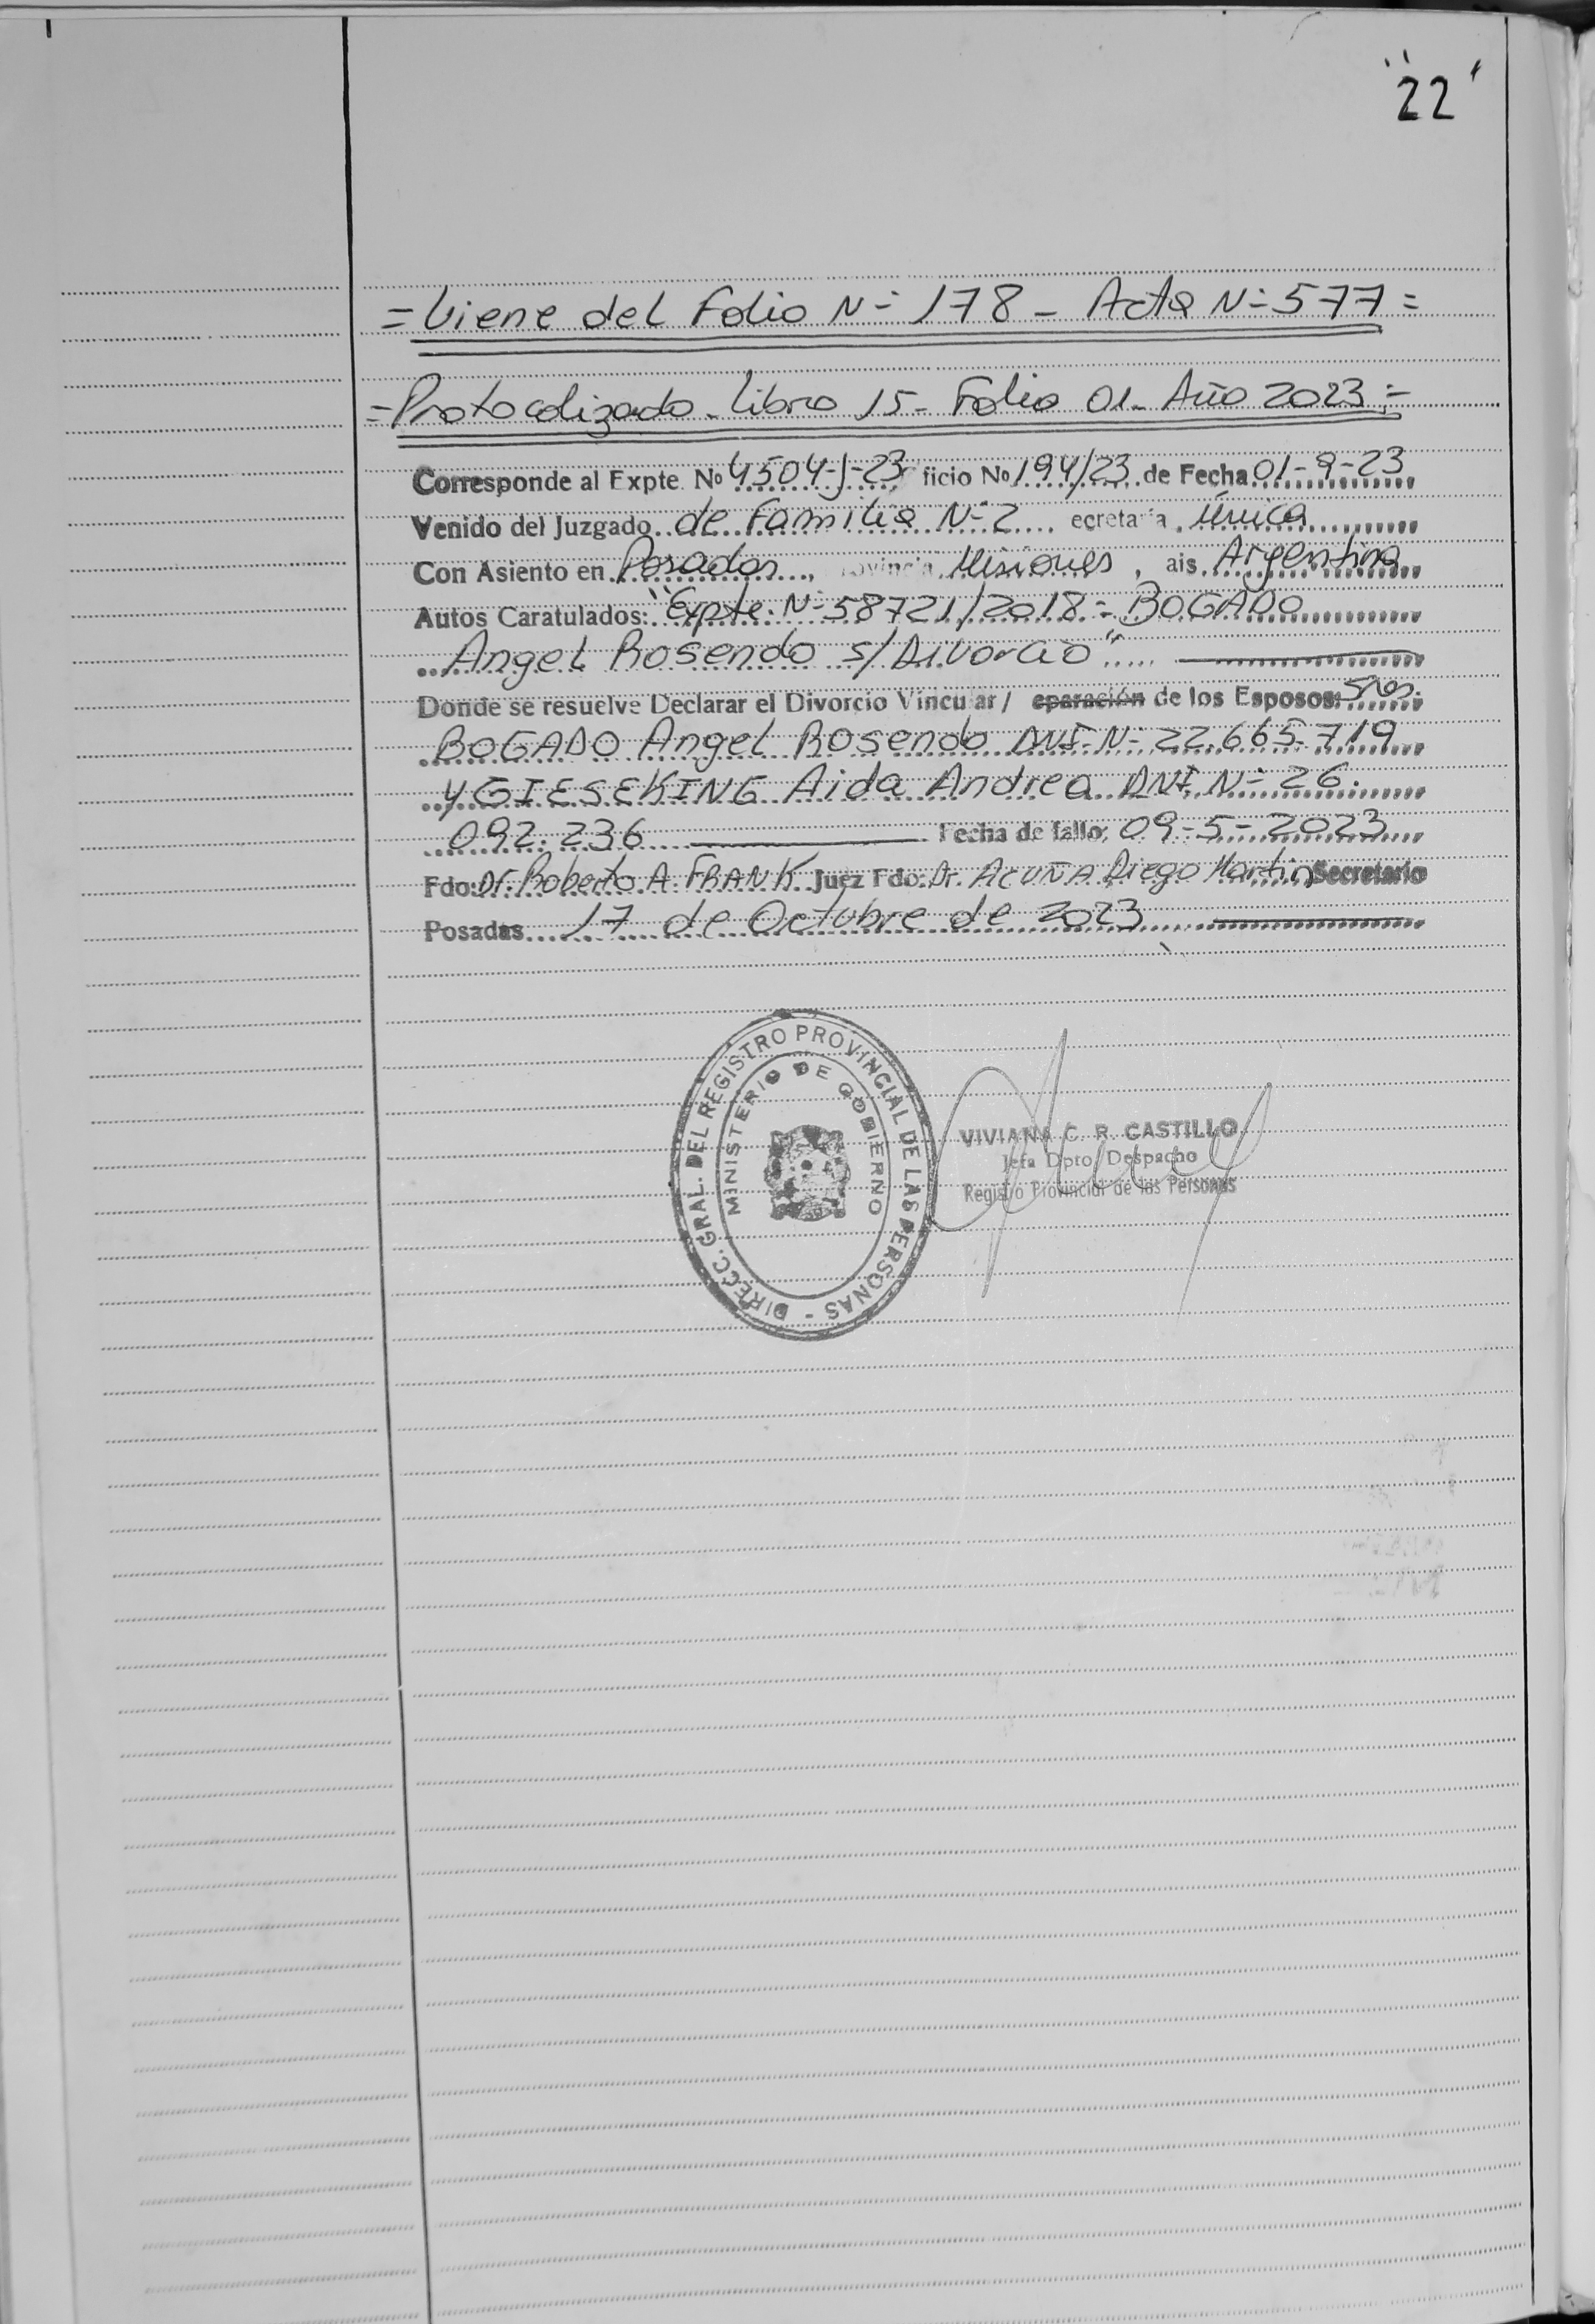 "22"
= Viene del Folio N= 178 - Acta N= 577 =
= Protocolizado - Libro 15 - Folio 01 - Año 2023 =
Corresponde al Expte. Nº 4504-J-23 ficio Nº 194/23 de Fecha 01-9-23
Venido del Juzgado de Familia N=2 ecretaría Única
Con Asiento en Posadas, rovincia Misiones, ais Argentina
Autos Caratulados: "Expte. N= 58721/2018 = BOGADO
Angel Rosendo s/Divorcio"
Donde se resuelve Declarar el Divorcio Vincular / eparación de los Esposos: Sres.
BOGADO Angel Rosendo DNI N= 22.665.719
y GIESEKING Aida Andrea DNI N= 26.
092.236 Fecha de fallo: 09-5-2023
Fdo: Dr. Roberto A. FRANK Juez Fdo: Dr. ACUÑA Diego Martin Secretario
Posadas 17 de Octubre de 2023
DIRECC. GRAL. DEL REGISTRO PROVINCIAL DE LAS PERSONAS -
MINISTERIO DE GOBIERNO
VIVIANA C. R. CASTILLO
Jefa Dpto. Despacho
Registro Provincial de las Personas